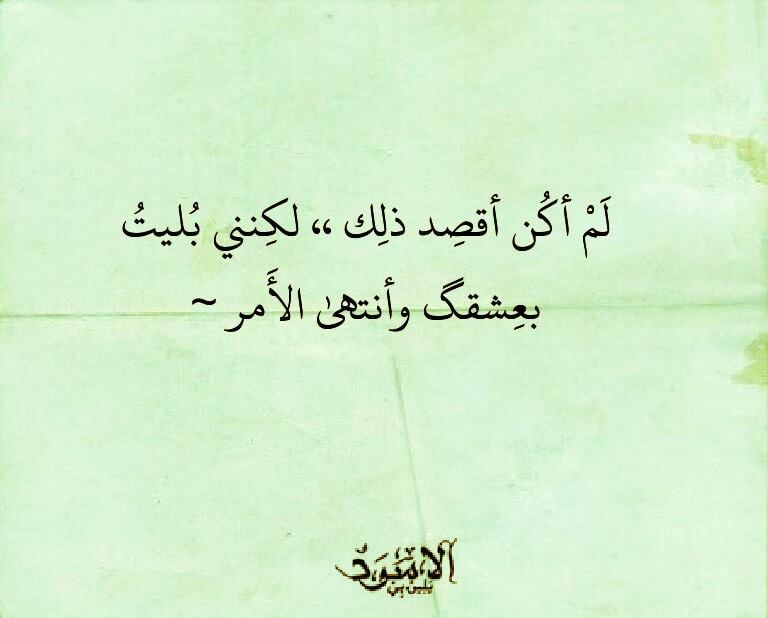 لَمْ أكُن أقصِد ذلِك ،، لكِنني بُليتُ
بعِشقگ وأنتهىٰ الأَمر ~